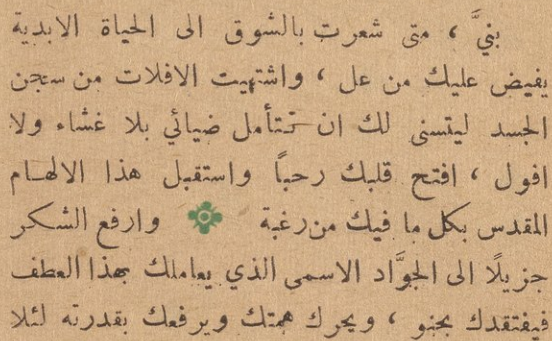 بنيَّ ، متى شعرت بالشوق الى الحياة الابدية
يفيض عليك من عل ، واشتهيت الافلات من سجن
الجسد ليتسنى لك ان تتأمل ضيائي بلا غشاء ولا
افول ، افتح قلبك رحباً واستقبل هذا الالهام
المقدس بكل ما فيك من رغبة وارفع الشكر
جزيلًا الى الجوَّاد الاسمى الذي يعاملك بهذا العطف
فيفتقدك بحنو ، ويحرك همتك ويرفعك بقدرته لئلا